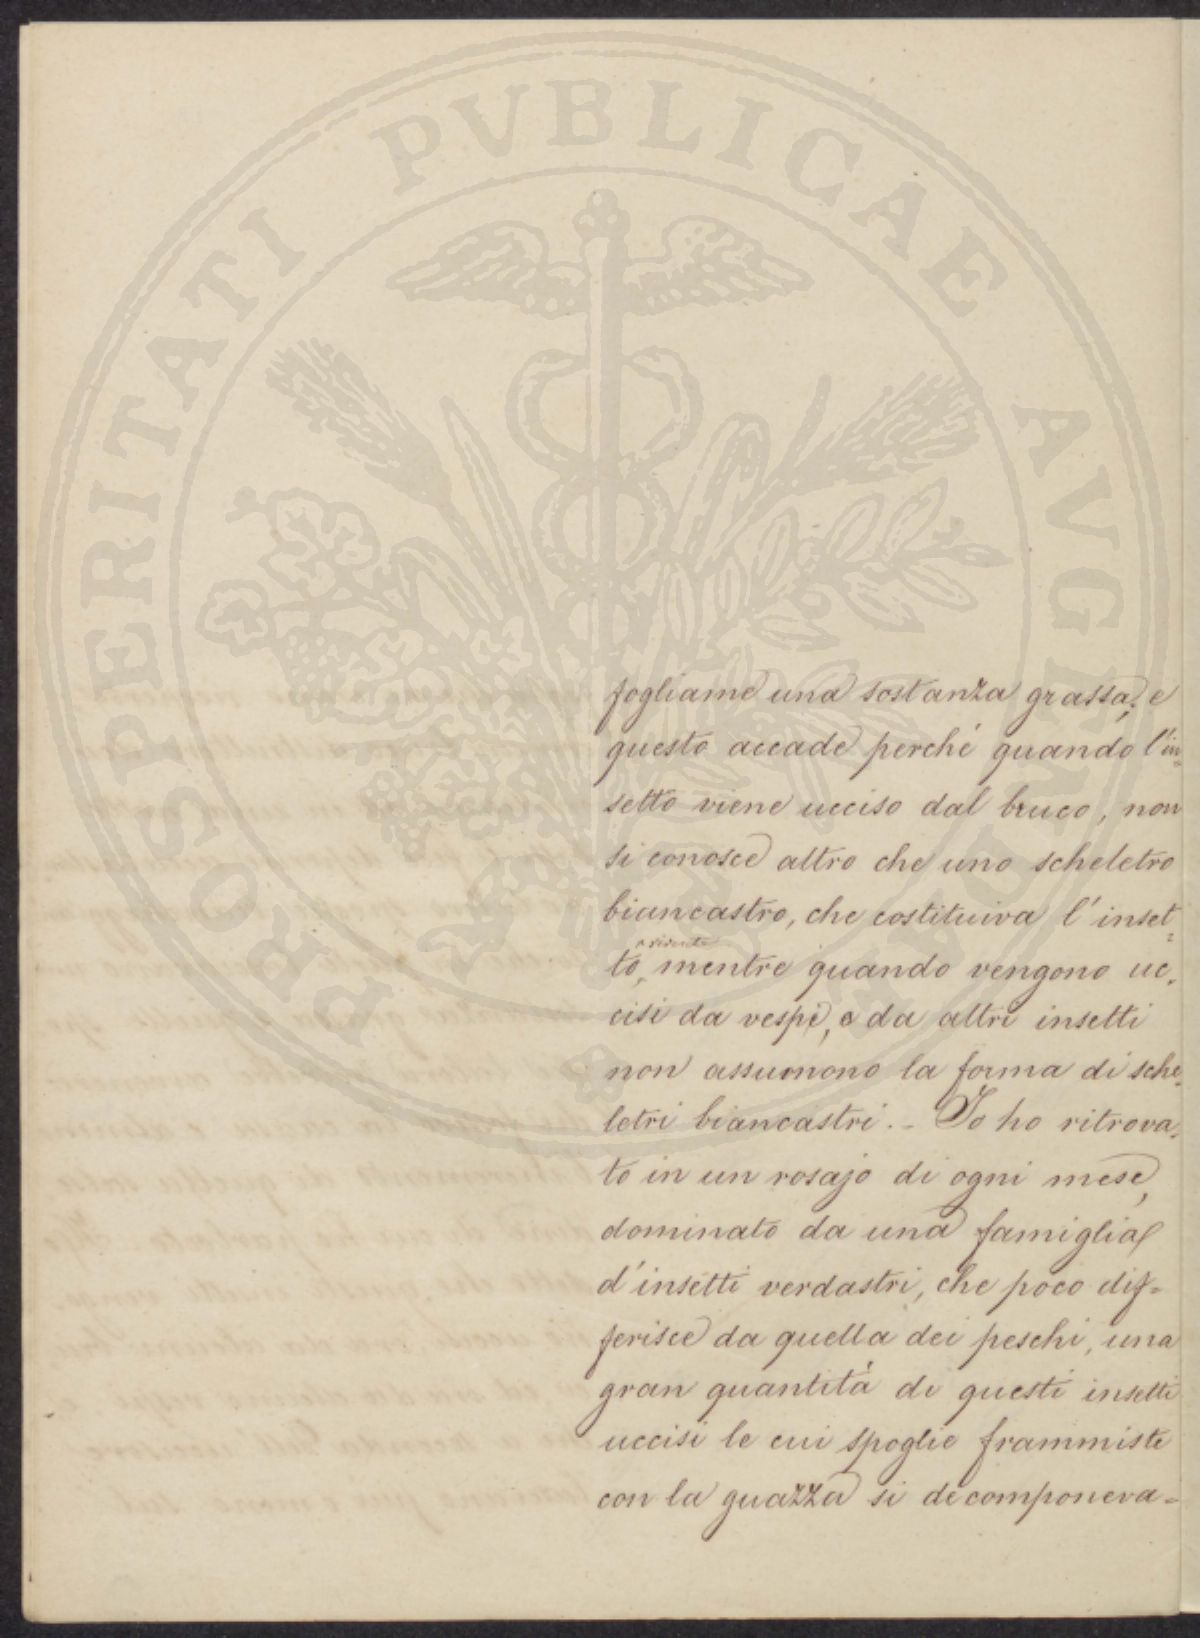 PROSPERITATI PVBLICAE AVGENDAE
fogliame una sostanza grassa, e
questo accade perché quando l'in-
setto viene ucciso dal bruco, non
si conosce altro che uno scheletro
biancastro, che costituiva l'inset-
vivente
to, mentre quando vengono uc-
cisi da vespe, o da altri insetti
non assumono la forma di sche-
letri biancastri. - Io ho ritrova-
to in un rosajo di ogni mese,
dominato da una famiglia
d'insetti verdastri, che poco dif-
ferisce da quella dei peschi, una
gran quantità di questi insetti
uccisi le cui spoglie frammiste
con la guazza si decomponeva-